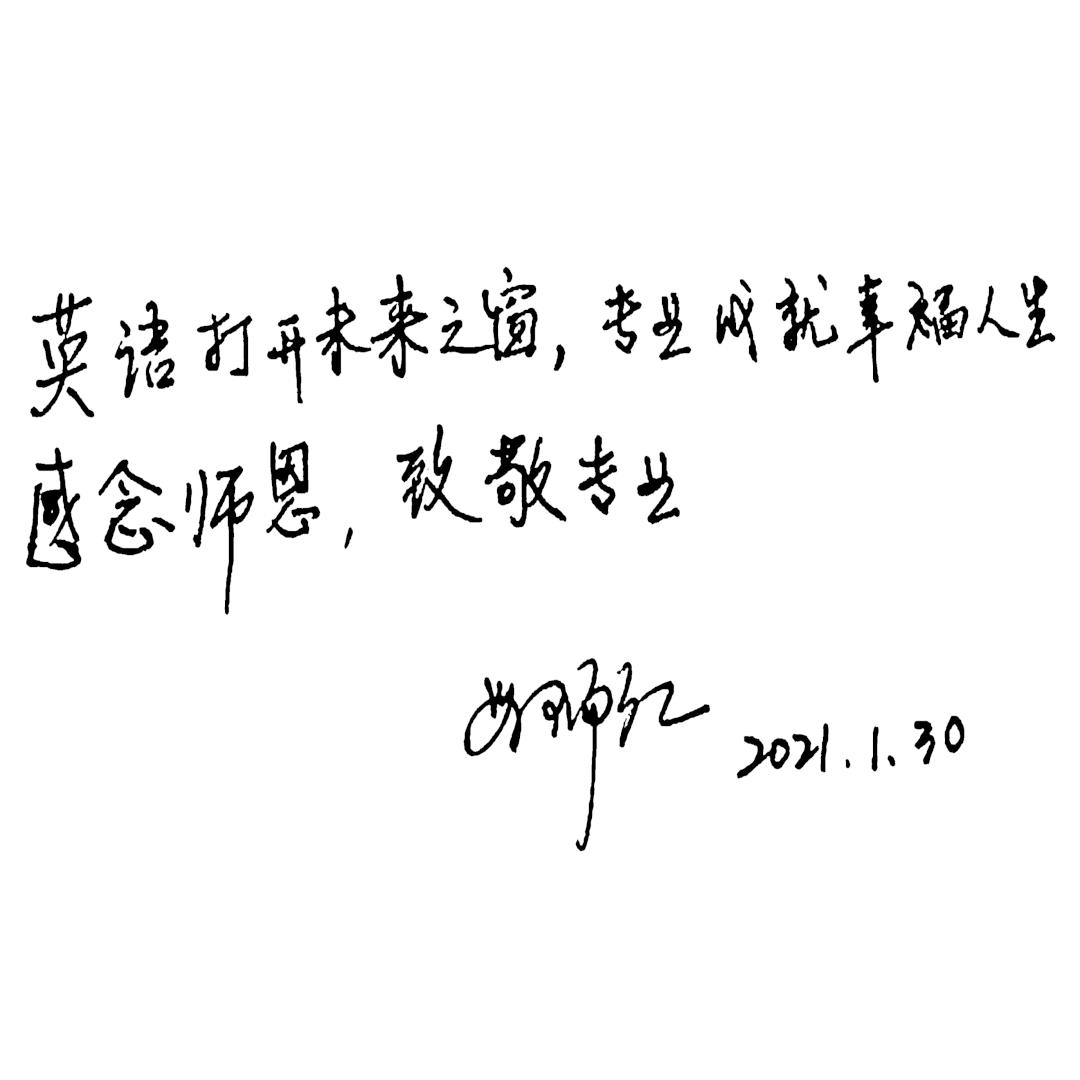 英语打开未来之窗,专业成就幸福人生
感念师恩,致敬专业
2021.1.30